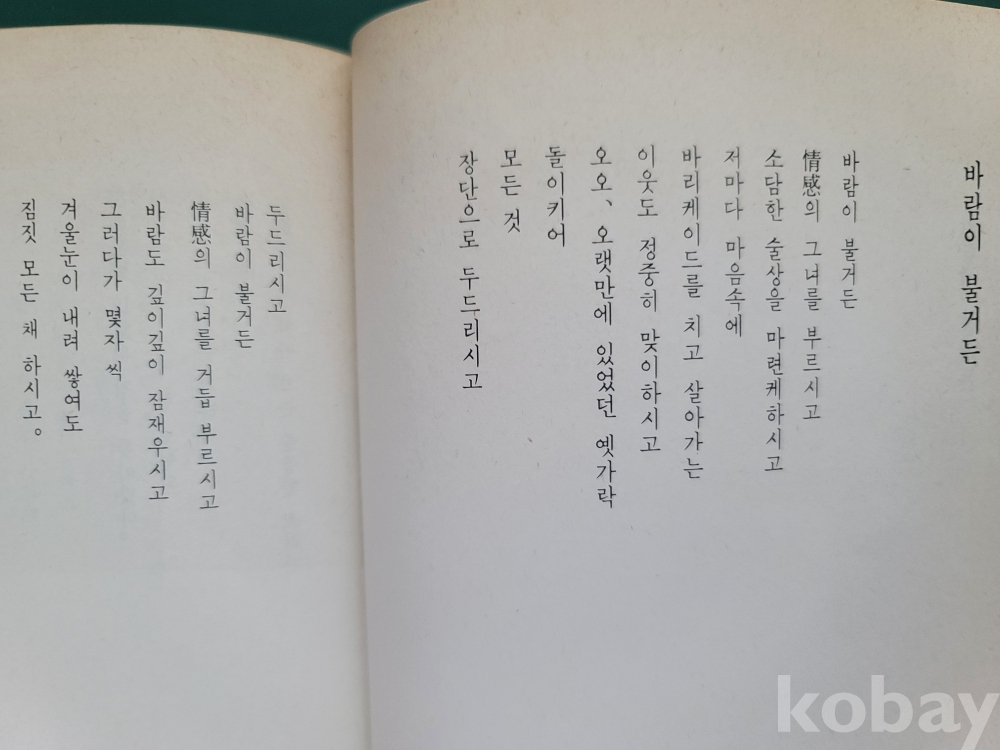 바람이 불거든
바람이 불거든
情感의 그녀를 부르시고
소담한 술상을 마련케하시고
저마다 마음속에
바리케이드를 치고 살아가는
이웃도 정중히 맞이하시고
오오、오랫만에 있었던 옛가락
돌이키어
모든 것
장단으로 두드리시고
두드리시고
바람이 불거든
情感의 그녀를 거듭 부르시고
바람도 깊이깊이 잠재우시고
그러다가 몇자 씩
겨울눈이 내려 쌓여도
짐짓 모든 채 하시고。
kobay